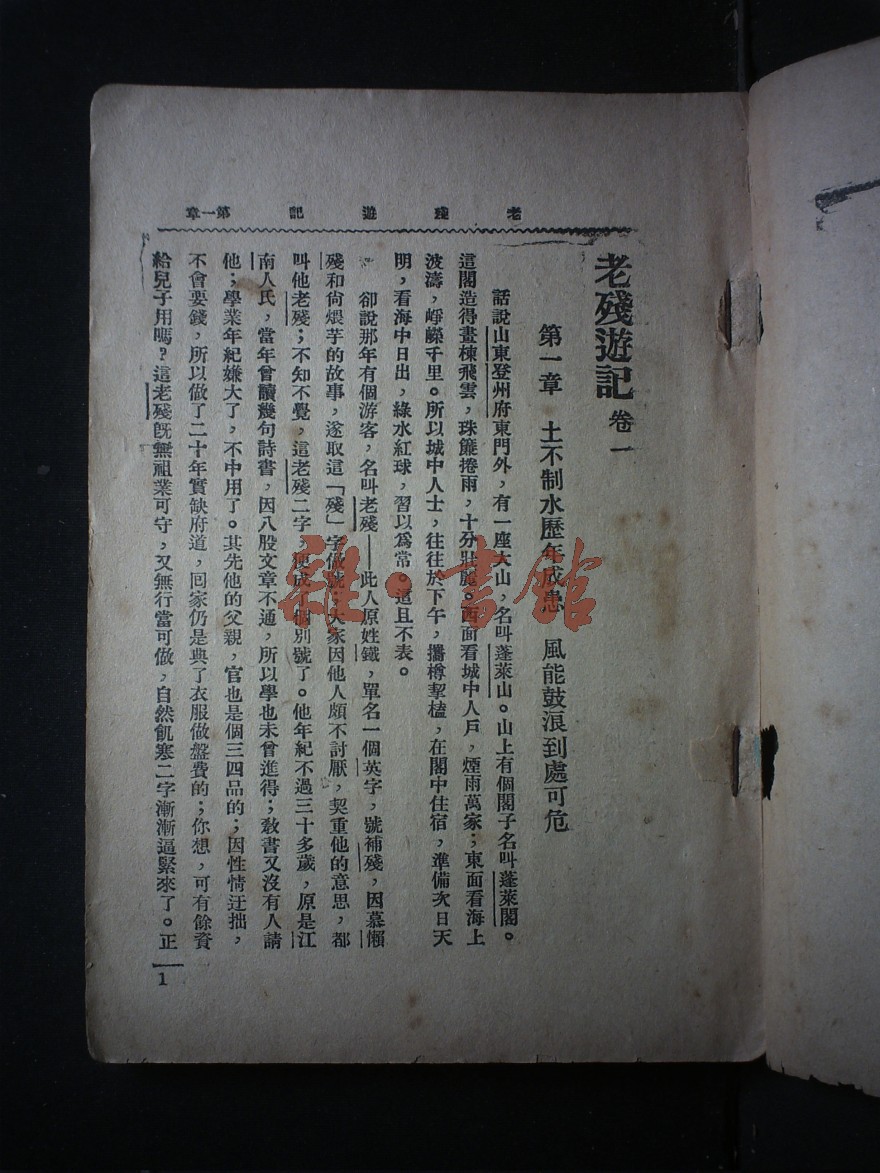 老殘遊記 第一章
老殘遊記 卷一
第一章 土不制水歷年成患 風能鼓浪到處可危
話說山東登州府東門外，有一座大山，名叫蓬萊山。山上有個閣子名叫蓬萊閣。
這閣造得畫棟飛雲，珠簾捲雨，十分壯麗。西面看城中人戶，煙雨萬家；東面看海上
波濤，崢嶸千里。所以城中人士，往往於下午，攜樽挈榼，在閣中住宿，準備次日天
明，看海中日出，綠水紅球，習以爲常。這且不表。
卻說那年有個游客，名叫老殘——此人原姓鐵，單名一個英字，號補殘，因慕懶
殘和尙煨芋的故事，遂取這「殘」字做號；大家因他人頗不討厭，契重他的意思，都
叫他老殘；不知不覺，這老殘二字，便成一個別號了。他年紀不過三十多歲，原是江
南人氏，當年曾讀幾句詩書，因八股文章不通，所以學也未曾進得；敎書又沒有人請
他；學業年紀嫌大了，不中用了。其先他的父親，官也是個三四品的；因性情迂拙，
不會要錢，所以做了二十年實缺府道，回家仍是典了衣服做盤費的；你想，可有餘資
給兒子用嗎？這老殘旣無祖業可守，又無行當可做，自然飢寒二字漸漸逼緊來了。正
1
雜·書館